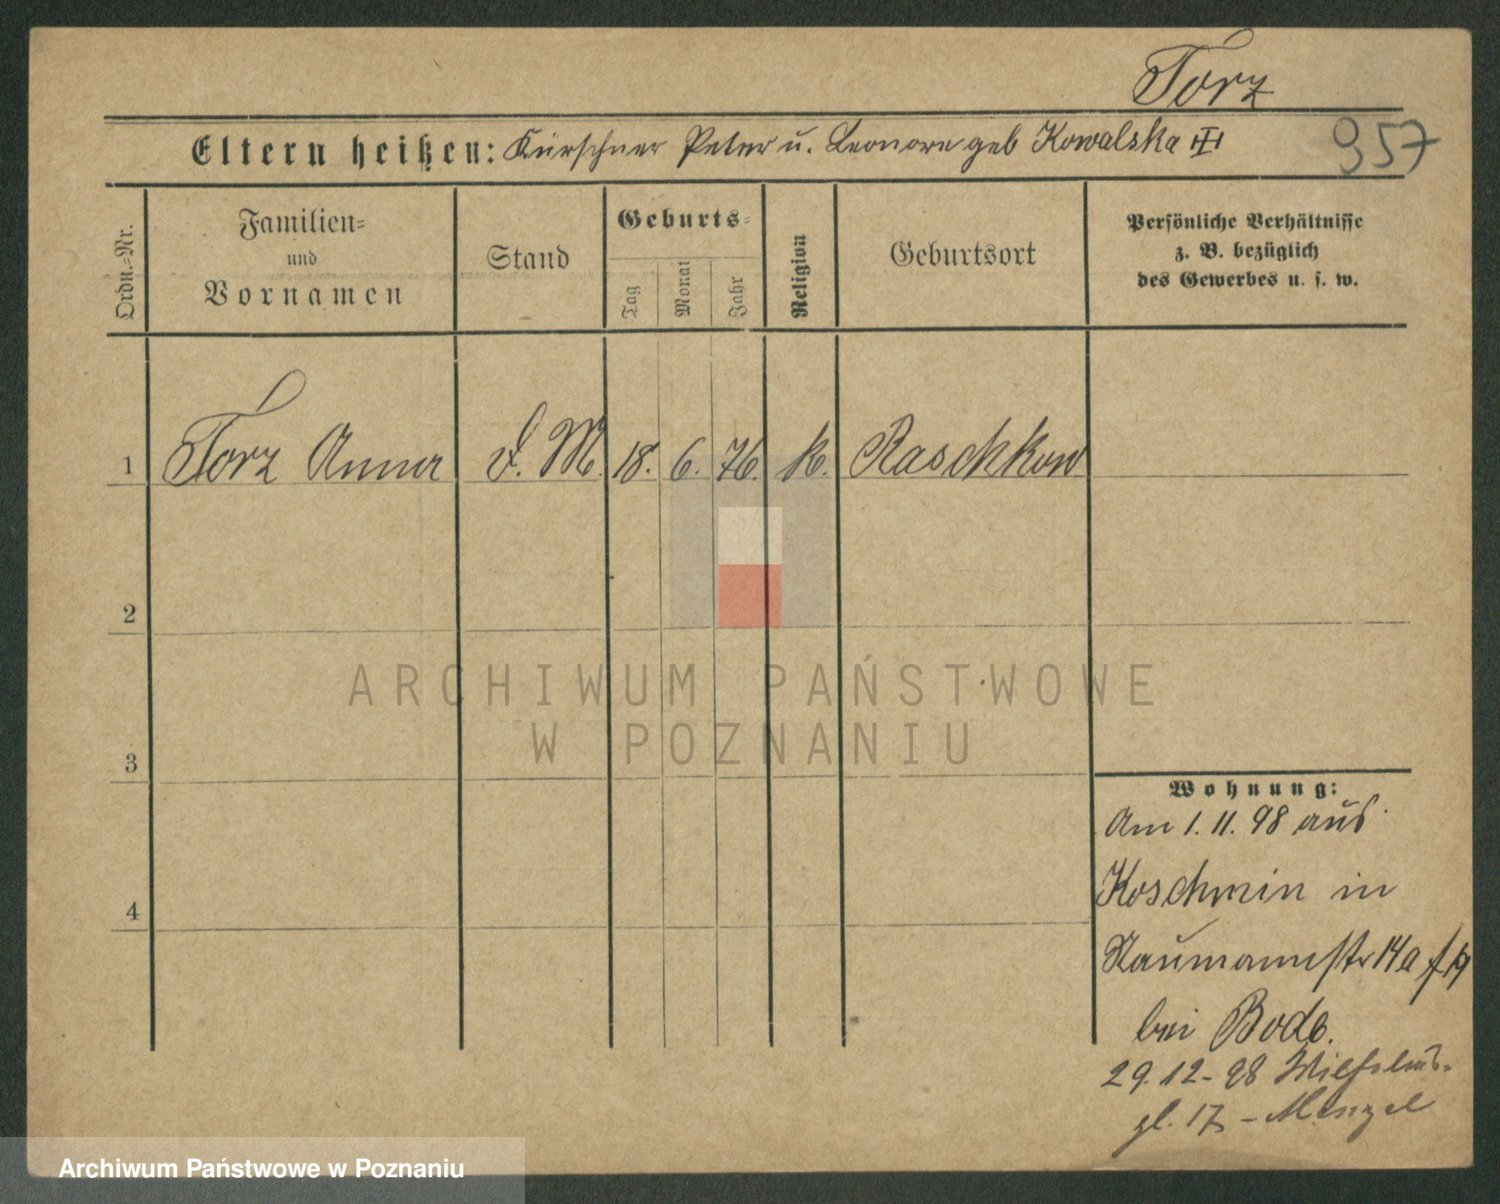 Torz
957
Eltern heißen: Kürschner Peter u. Leonore geb Kowalska
Ordn.-Nr.
Familien-
und
Vornamen
Stand
Geburts-
Tag
Monat
Jahr
Religion
Geburtsort
Persönliche Verhältnisse
z. B. bezüglich
des Gewerbes u. s. w.
1 Torz Anna d. M. 18. 6. 76. k. Raschkow
2
ARCHIWUM PAŃSTWOWE
W POZNANIU
3
Wohnung:
Am 1. 11. 98 aus
4
Koschmin in
Naumannstr 14a
bei Bode.
29.12-98 Wilhelms-
pl. 17 - Menzel
Archiwum Państwowe w Poznaniu